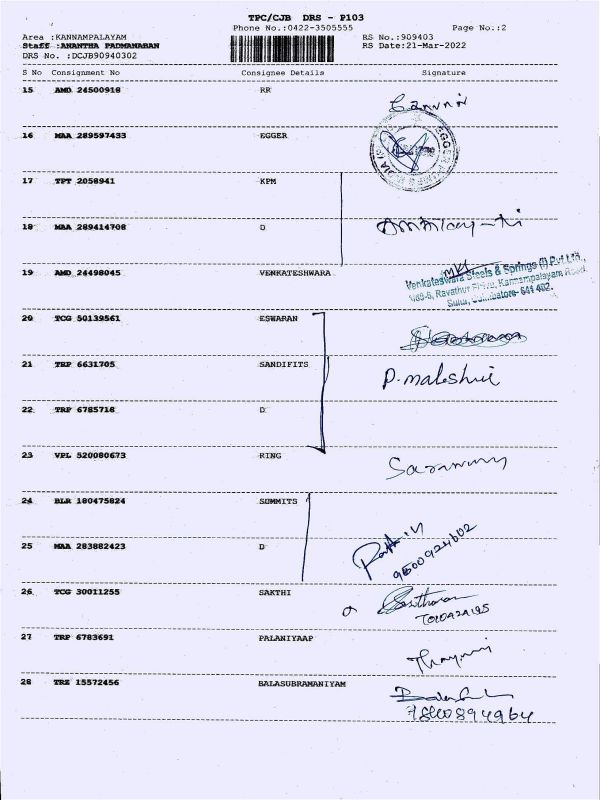 TPC/CJB DRS - P103
Phone No.:0422-3505555 Page No.:2
Area :KANNAMPALAYAM RS No.:909403
Staff :ANANTHA PADMANABAN RS Date:21-Mar-2022
DRS No. :DCJB90940302
S No Consignment No Consignee Details Signature
15 AMD 24500918 RR
16 MAA 289597433 EGGER
17 TPT 2058941 KPM
18 MAA 289414708 D
19 AMD 24498045 VENKATESHWARA
Venkateswara Steels & Springs (I) Pvt Ltd.,
Kannampalayam Road
Sulur, Coimbatore- 641 402.
20 TCG 50139561 ESWARAN
21 TRP 6631705 SANDIFITS P. maleshwi
22 TRP 6785718 D
23 VPL 520080673 RING
24 BLR 180475824 SUMMITS
25 MAA 283882423 D
9500924602
26 TCG 30011255 SAKTHI
27 TRP 6783691 PALANIYAAP
28 TRZ 15572456 BALASUBRAMANIYAM